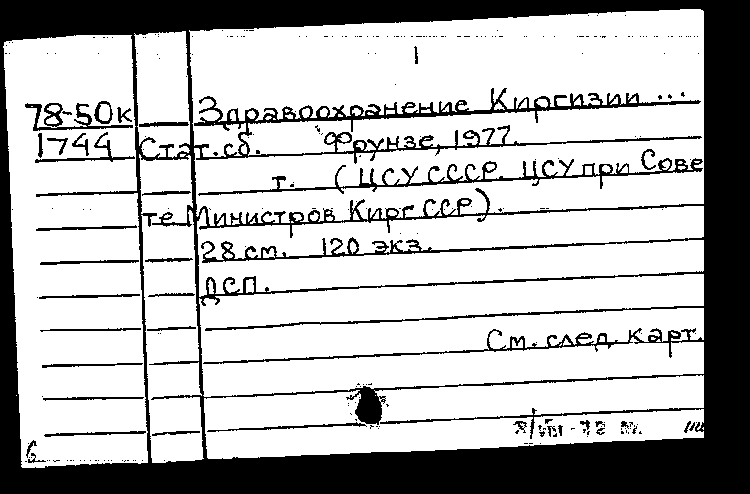 1
78-50к Здравоохранение Киргизии ...
1744 Стат.сб. Фрунзе, 1977.
т. (ЦСУ СССР. ЦСУ при Сове
те Министров Кирг ССР).
28 см. 120 экз.
ДСП.
См. след. карт.
6